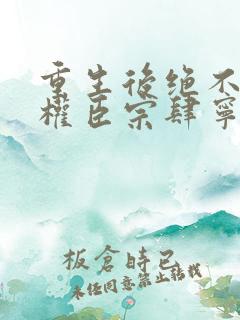 重生後绝不
權臣宗肆寧
板倉時已
未任同意禁止轉載